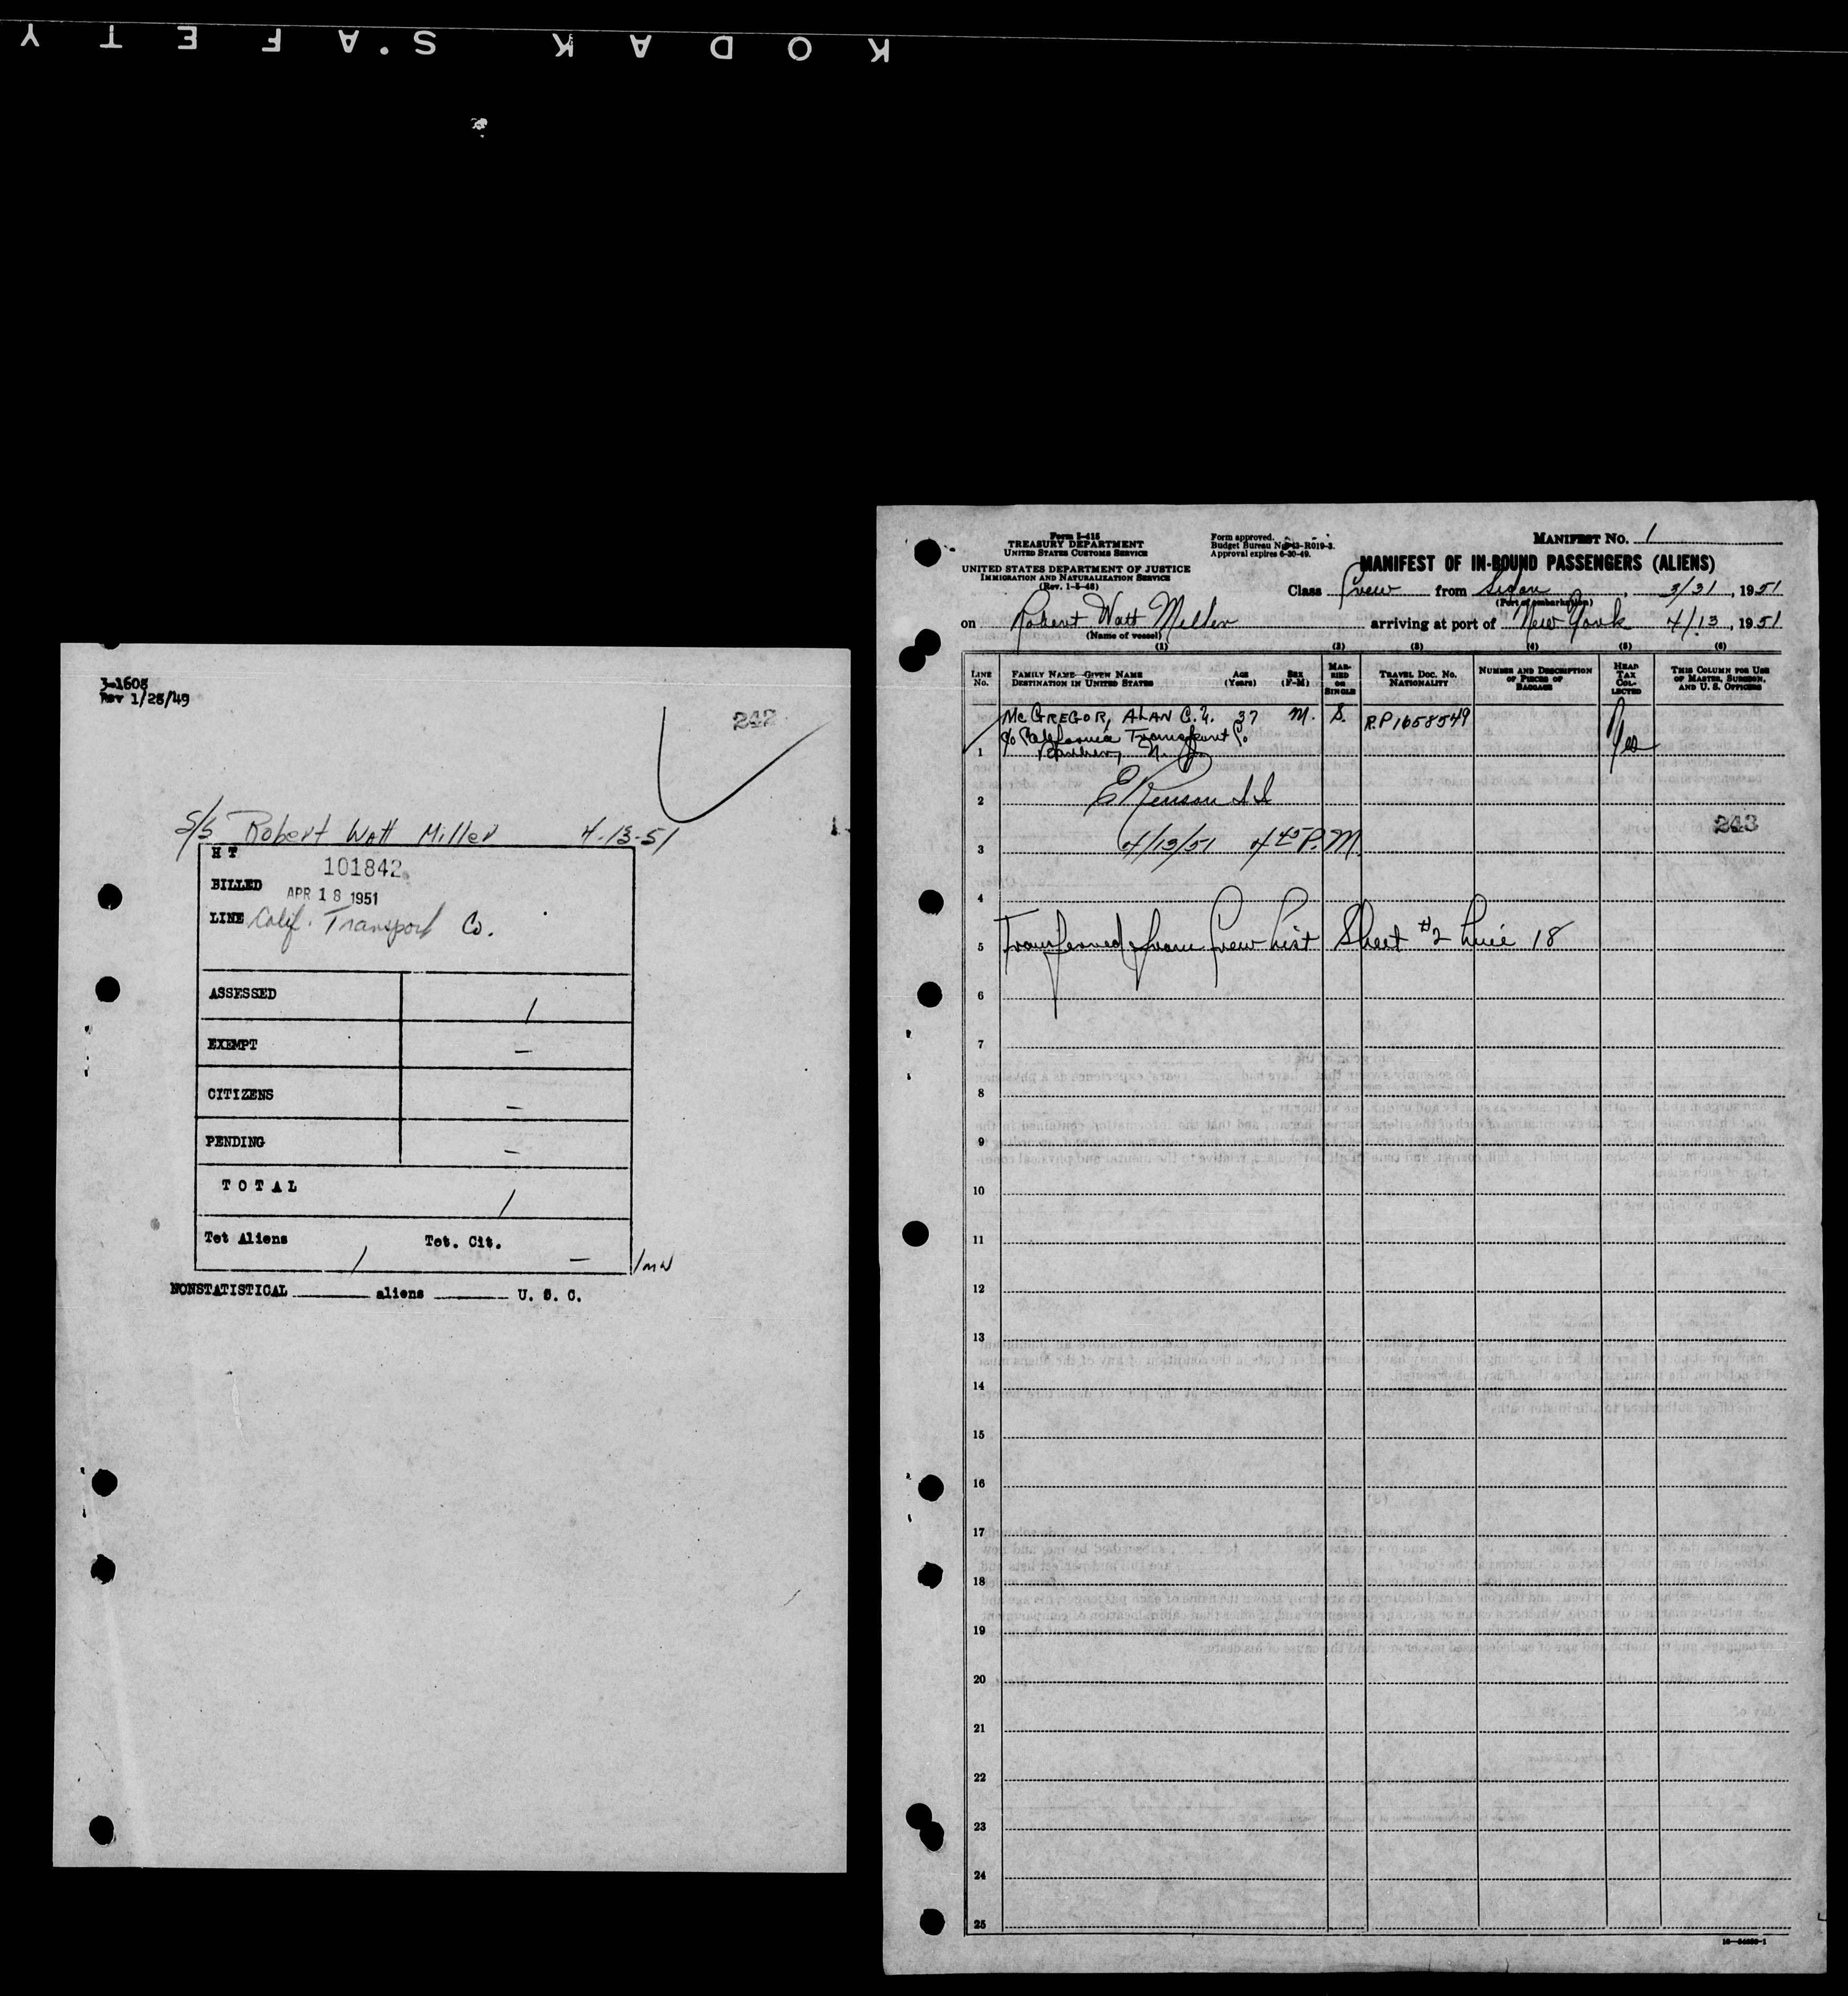 KODAK S.AFETY
3-1608
Rev 1/28/49
242
S/S Robert Watt Miller 4-13-51
H T
101842
BILLED APR 18 1951
LINE Calif. Transport Co.
ASSESSED /
EXEMPT –
CITIZENS –
PENDING –
TOTAL /
Tot Aliens / Tot. Cit. –
NONSTATISTICAL aliens U. S. C.
Form I-415
TREASURY DEPARTMENT
UNITED STATES CUSTOMS SERVICE
UNITED STATES DEPARTMENT OF JUSTICE
IMMIGRATION AND NATURALIZATION SERVICE
(Rev. 1-5-48)
Form approved.
Budget Bureau No. 43-R019-3.
Approval expires 6-30-49.
MANIFEST NO. 1
MANIFEST OF IN-BOUND PASSENGERS (ALIENS)
Class Crew from Sidon, 3/31, 1951
(Port of embarkation)
on Robert Watt Miller arriving at port of New York 4/13, 1951
(Name of vessel)
(1) (2) (3) (4) (5) (6)
LINE No.
FAMILY NAME—GIVEN NAME
DESTINATION IN UNITED STATES
AGE (Years)
SEX (F-M)
MARRIED OR SINGLE
TRAVEL DOC. NO.
NATIONALITY
NUMBER AND DESCRIPTION OF PIECES OF BAGGAGE
HEAD TAX COLLECTED
THIS COLUMN FOR USE OF MASTER, SURGEON, AND U. S. OFFICERS
McGREGOR, ALAN C. 37 M. S. R.P 1658549 Yes
c/o California Transport Co.
1 N. J.
2
243
3 4/13/51 4 45 P.M.
4
5 Transferred from Crew List Sheet #2 Line 18
6
7
8
9
10
11
12
13
14
15
16
17
18
19
20
21
22
23
24
25